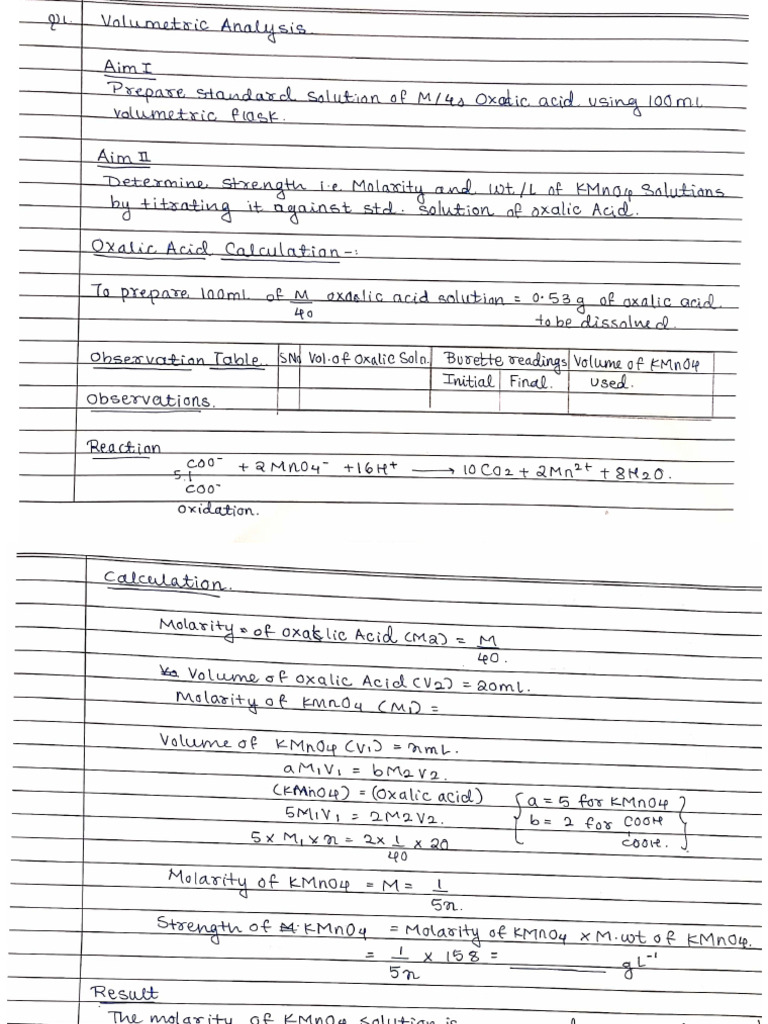 Q1. Volumetric Analysis.
Aim I
Prepare standard solution of M/40 Oxalic acid using 100mL
volumetric flask.
Aim II
Determine strength i.e Molarity and wt/L of KMnO4 Solutions
by titrating it against std. solution of oxalic Acid.
Oxalic Acid Calculation -:
To prepare 100mL of M/40 oxaslic acid solution = 0.53g of oxalic acid
to be dissolved.
Observation Table. SNo Vol. of Oxalic Soln. Burette readings Volume of KMnO4
Initial Final. used.
Observations.
Reaction
5 COO⁻ | COO⁻ + 2MnO4⁻ + 16H⁺ ⟶ 10CO2 + 2Mn²⁺ + 8H2O.
oxidation.
Calculation.
Molarity of oxalic Acid (M2) = M/40.
Volume of oxalic Acid (V2) = 20mL.
Molarity of KMnO4 (M1) =
Volume of KMnO4 (V1) = xmL.
aM1V1 = bM2V2.
(KMnO4) = (Oxalic acid) { a = 5 for KMnO4 }
5M1V1 = 2M2V2. { b = 2 for COOH | COOH. }
5 x M1 x x = 2 x 1/40 x 20
Molarity of KMnO4 = M = 1/5x.
Strength of KMnO4 = Molarity of KMnO4 x M.wt of KMnO4.
= 1/5x x 158 = ________ gL⁻¹
Result
The molarity of KMnO4 solution is